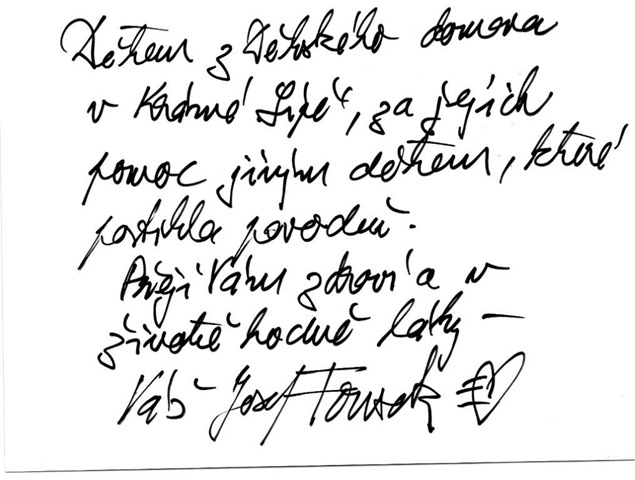 Dětem z Dětského domova
v Krásné Lípě, za jejich
pomoc jiným dětem, které
postihla povodeň.
Přeji Vám zdraví a v
životě hodně lásky –
Váš Josef Fousek